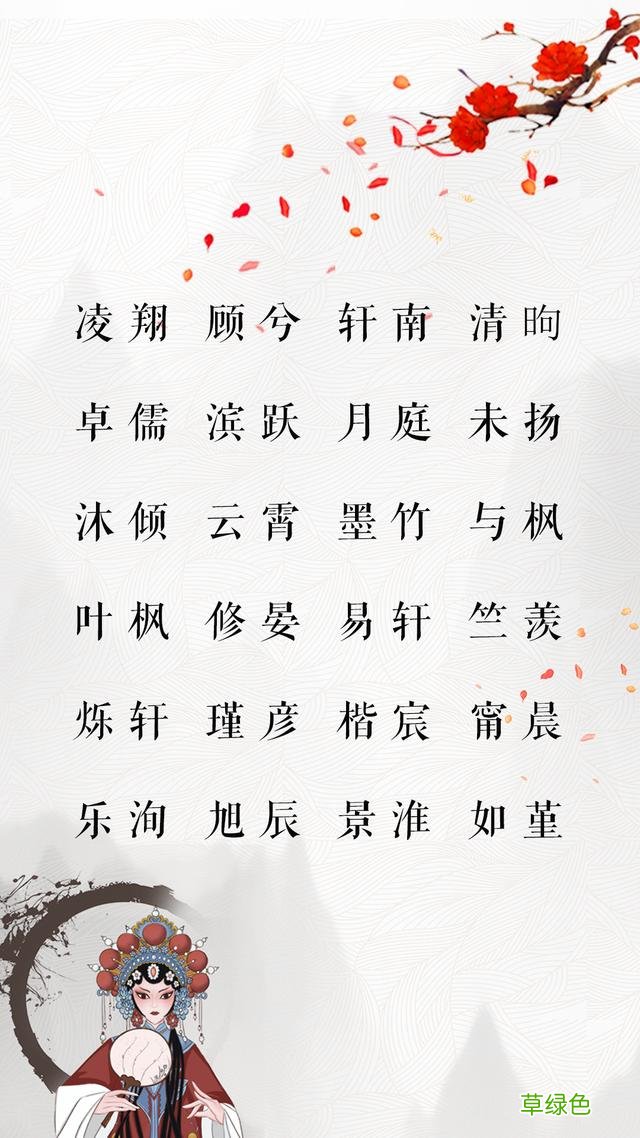 凌翔 顾兮 轩南 清昫
卓儒 滨跃 月庭 未扬
沐倾 云霄 墨竹 与枫
叶枫 修晏 易轩 竺羡
烁轩 瑾彦 楷宸 甯晨
乐洵 旭辰 景淮 如堇
草绿色